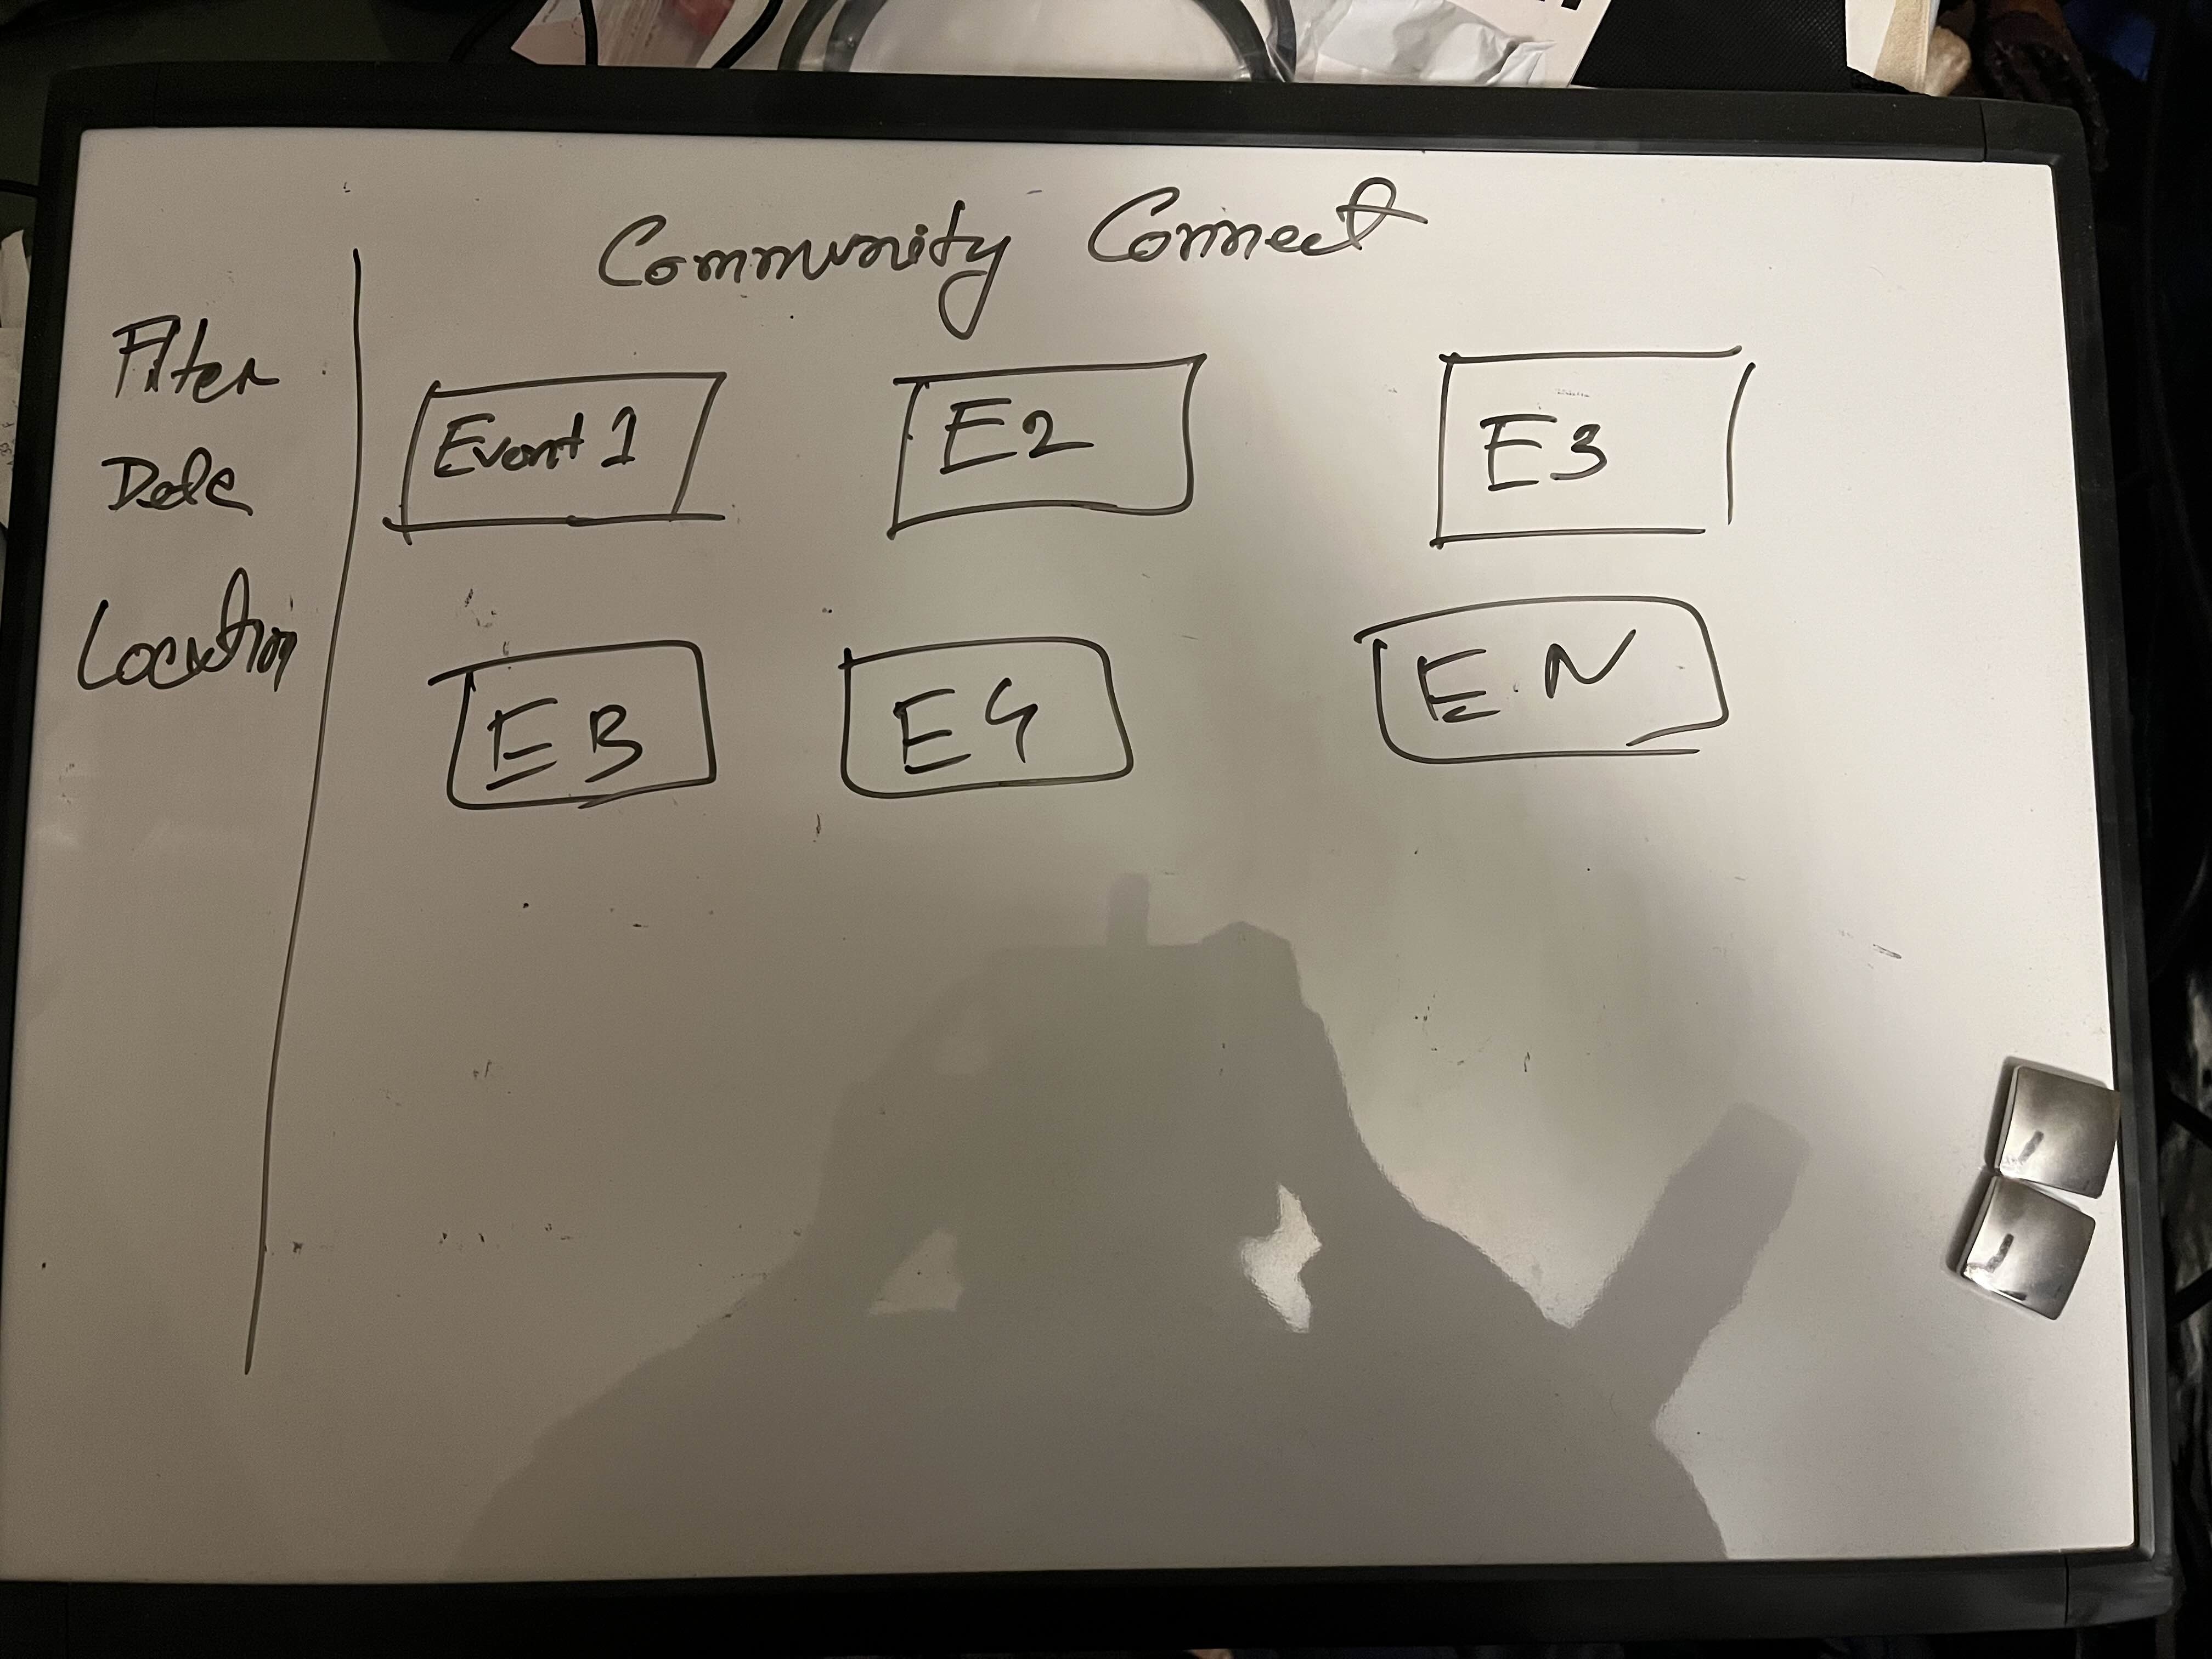 Community Connect
Filter
Date
Location
Event 1
E2
E3
EB
E4
EN